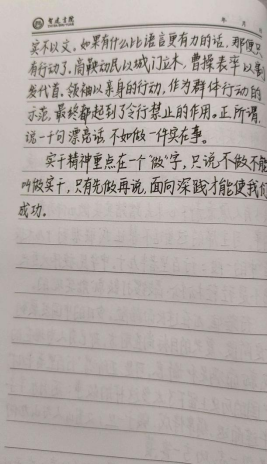 年 月 日
实不以文。如果有什么比语言更有力的话,那便只
有行动了。商鞅动民以城门立木,曹操表率以割
发代首。领袖以亲身的行动,作为群体行动的
示范,最终都起到了令行禁止的作用。正所谓,
说一千句漂亮话,不如做一件实在事。
实干精神重点在一个“做”字,只说不做不能
叫做实干,只有先做再说,面向深践才能使我们
成功。